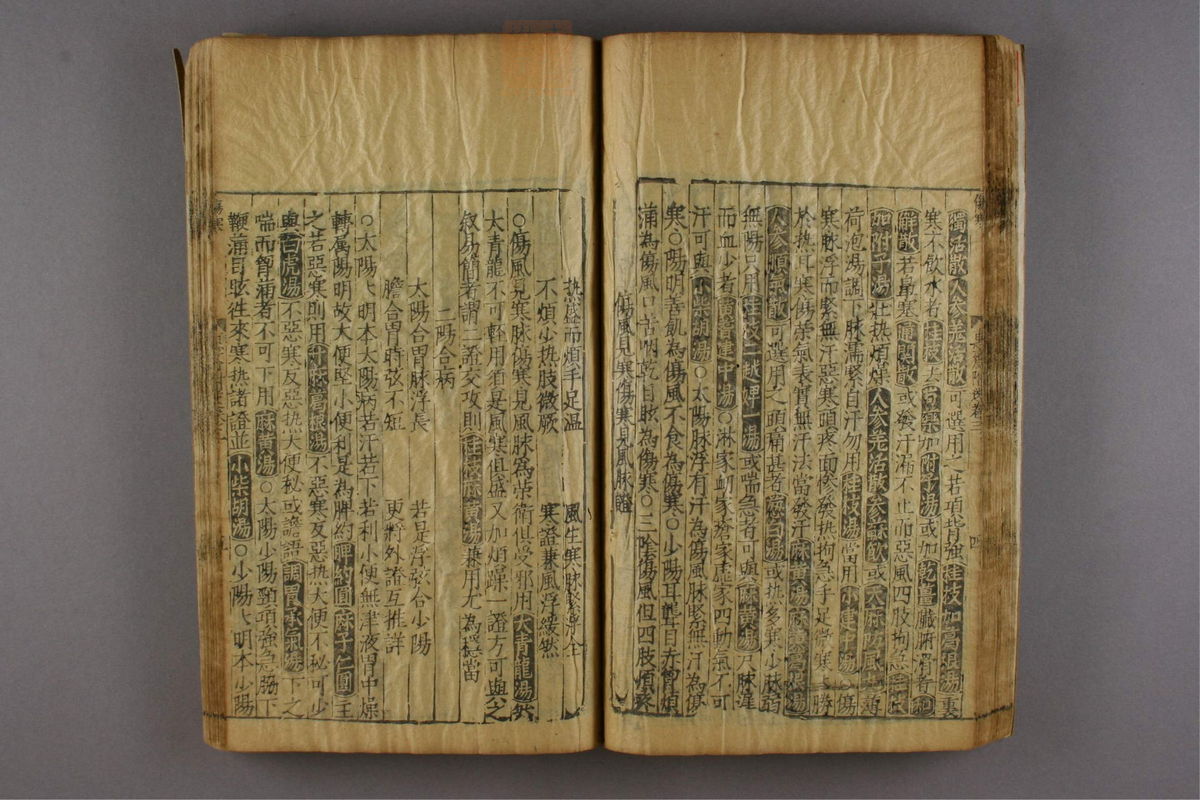 獨活散人參羌活散可選用之若項背強桂枝加葛根湯裏
寒不飲水者桂枝去芍藥加附子湯或加乾薑臟腑滑者和
解散若暈寒或發汗漏不止而惡風四肢拘急桂枝
加附子湯壯热煩燥人參羌活散參蘇飲或天麻防風
荷泡湯調下脉濡緊自汗勿用桂枝湯當用小建中湯傷
寒脉浮而緊無汗惡寒頭疼面慘發热拘急手足微寒勝
於热且寒傷榮氣表實無汗法當發汗麻黃湯麻黃葛根湯
人參順氣散可選用之頭痛甚者葱白湯或热多寒少脉弱
無陽只用桂枝二越婢一湯或喘急者可與麻黃湯尺脉遲
而血少者黃耆建中湯○淋家衂家瘡家虛家四動氣不可
汗可與小柴胡湯○太陽脉浮有汗為傷風脉緊無汗為傷
寒○陽明善飢為傷風不食為傷寒○少陽耳聾目赤滿煩
滿為傷風口苦咽乾目眩為傷寒○三陰傷風但四肢煩疼
傷風見寒傷寒見風脉證
热盛而煩手足温 風生寒脉緊浮全
不煩少热肢微厥 寒證兼風浮緩然
○傷風見寒脉傷寒見風脉為荣衛俱受邪用大青龍湯然
大青龍不可軽用須是風寒俱盛又加煩躁一證方可與之
叙易簡者謂二證交攻則桂枝麻黃湯兼用尤為穩當
二陽合病
太陽合胃脉浮長 若是浮弦合少陽
膽合胃時弦不短 更將外證互推詳
○太陽陽明本太陽病若汗若下若利小便無津液胃中燥
轉属陽明故大便堅小便利是為脾約脾約圓麻子仁圓主
之若惡寒則用升麻葛根湯不惡寒反惡热大便不秘可少
與白虎湯不惡寒反惡热大便秘或譫語調胃承氣湯下之
喘而胷滿者不可下用麻黃湯○太陽少陽頸項強急脇下
鞕滿目眩往來寒热諸證並小柴胡湯○少陽陽明本少陽